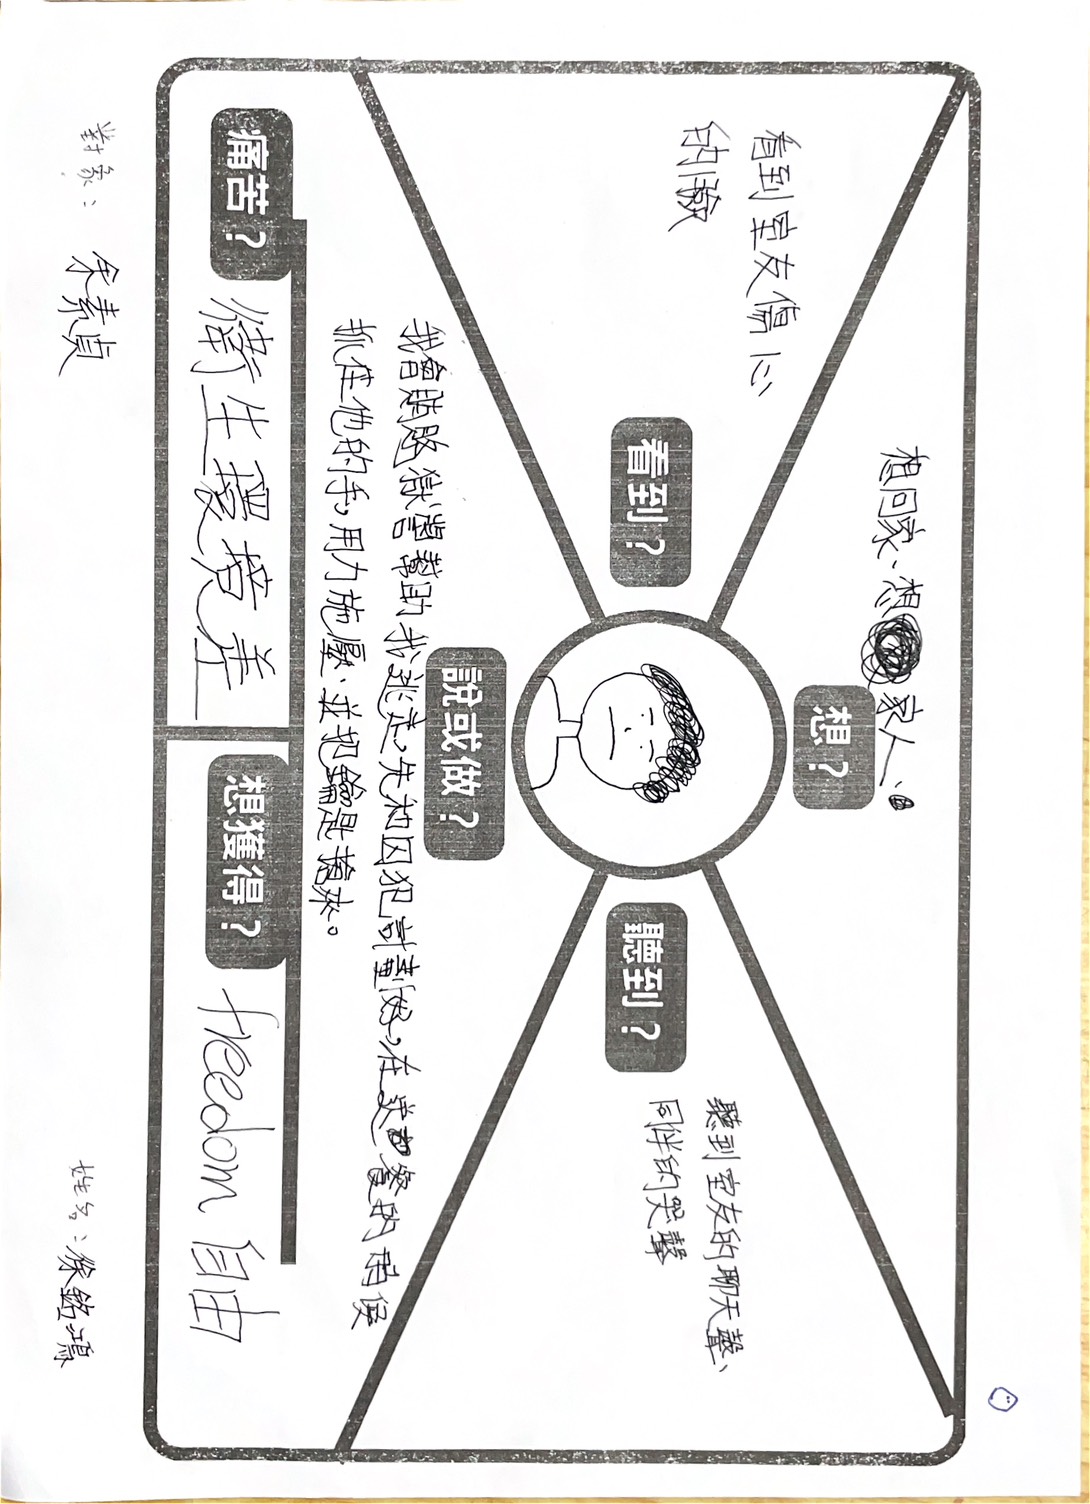 對象：余素貞
姓名：徐銘鴻
想？
想回家、想家人。
看到？
看到室友偏心
的臉
聽到？
聽到室友的聊天聲、
同伴的哭聲
說或做？
我會賄賂獄警幫助我逃走，先和囚犯計劃好，在送餐的時候
抓住他的手，用力施壓，並把鑰匙搶來。
痛苦？
衛生環境差
想獲得？
freedom 自由